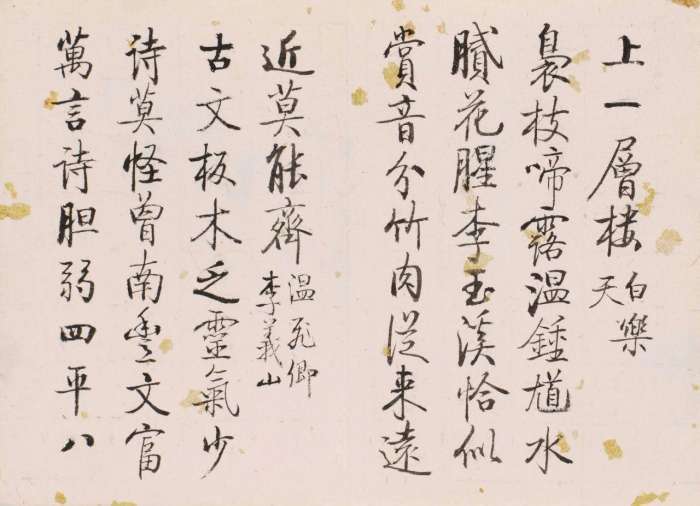 上一層楼 白樂天
裊枝啼露温鍾馗水
膩花腥李玉溪恰似
賞音分竹肉從来遠
近莫能齊 温飛卿李義山
古文板木乏靈氣少
诗莫怪曾南豊文富
萬言诗胆弱四平八